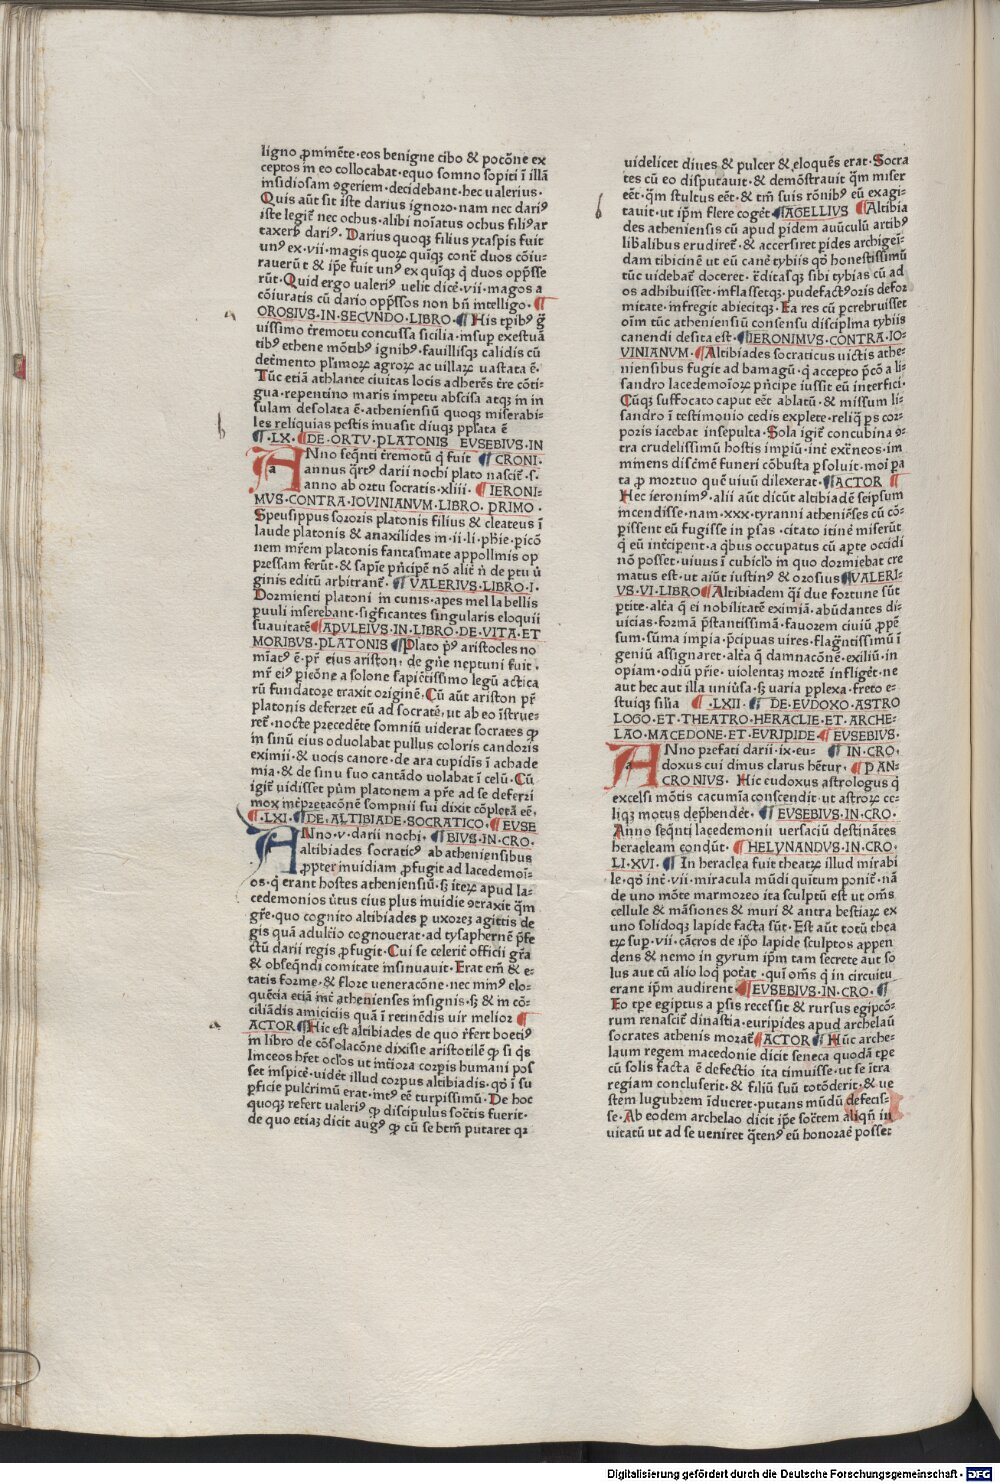 ligno ꝓminēte·eos benigne cibo & potōne ex
ceptos in eo collocabat·equo somno sopiti ī illā
insidiosam ꝯgeriem·decidebant·hec ualerius·
Quis aūt sit iste darius ignoro·nam nec dariꝰ
iste legit̄ nec ochus·alibi noīatus ochus filiꝰ ar
taxerẜ dariꝰ· Darius quoqꝫ filius ytaspis fuit
unꝰ ex·vii·magis quoꝝ quīqꝫ cont̄ duos cōiu-
rauerūt & ip̄e fuit unꝰ ex quīqꝫ q̄ duos opp̄sse
rūt·Quid ergo ualeriꝰ uelit dicē·vii·magos a
cōiuratis cū dario opp̄ssos non bn̄ intelligo· ¶
OROSIVS·IN·SECVNDO·LIBRO·¶His tp̄ibꝰ g̃
uissimo t̄remotu concussa sicilia·insup exestuā
tibꝰ ethene mōtibꝰ ignibꝰ·fauillisqꝫ calidis cū
det̄mento pl'imoꝝ agroꝝ ac uillaꝝ uastata ē·
Tūc etiā athlante ciuitas locis adherēs t̄re cōti-
gua·repentino maris impetu abscisa atqꝫ in in
sulam desolata ē·atheniensiū quoqꝫ miserabi-
les reliquias pestis inuasit diuqꝫ pp̄lata ē
¶·LX·¶DE·ORTV·PLATONIS EVSEBIVS·IN
ANno seq̄nti t̄remotū q̄ fuit ¶ CRONI·
annus q̄rtꝰ darii nochi plato nascit̄·s·
anno ab oꝛtu socratis·xliii· ¶IERONI-
MVS·CONTRA·IOVINIANVM·LIBRO·PRIMO·
Speusippus sororis platonis filius & cleateus ī
laude platonis & anaxilides in·ii·li·ph̄ie·picō
nem mr̄em platonis fantasmate appollinis op
pressam ferūt·& sapīe pn̄cipē nō alit̄ n̄ de ꝑtu ů
ginis editū arbitrant̄·¶VALERIVS·LIBRO·I·
Dormienti platoni in cunis·apes mel labellis
puuli inserebant·sigficantes singularis eloquii
suauitatē¶APVLEIVS·IN·LIBRO·DE·VITA·ET
MORIBVS·PLATONIS ¶Plato pꝰ aristocles no
miatꝰ ē·pr̄ eius ariston·de gn̄e neptuni fuit·
mr̄ eiꝰ picōne a solone sapiētissimo legū actica
rū fundatoꝛe traxit originē·Cū aūt ariston pr̄
platonis deferꝛet eū ad socratē·ut ab eo īstrue-
ret̄·nocte precedēte somniū uiderat socrates ꝙ
in sinū eius oduolabat pullus coloris candoris
eximii·& uocis canore·de ara cupidis ī achade
mia·& de sinu suo cantādo uolabat ī celū·Cū
igit̄ uidisset pùm platonem a pr̄e ad se deferꝛi
mox int̄pretacōne sompnii sui dixit cōpletā eē·
¶·LXI·¶DE·ALTIBIADE·SOCRATICO·¶EVSE
ANno·v·darii nochi· ¶BIVS·IN·CRO·
altibiades socraticꝰ ab atheniensibus
ꝓpter inuidiam ꝓfugit ad lacedemoī-
os·q̄ erant hostes atheniensiū·ẜ iteꝝ apud la-
cedemonios ůtus eius plus inuidie ꝯtraxit q̄m
gr̄e·quo cognito altibiades ꝑ uxoreꝫ agittis de
gis quā adulc̄io cognouerat·ad tysaphernē pf̄e
ctū darii regis ꝓfugit·Cui se celerit̄ officii gr̄a
& obseq̄ndi comitate insinuauit·Erat em̄ & e-
tatis forme·& flore ueneracōne·nec minꝰ elo-
quētia etiā int̄ athenienses insignis·ẜ & in cō-
ciliādis amiciciis quā ī retinēdis uir melior ¶
ACTOR¶Hic est altibiades de quo rf̄ert boetiꝰ
in libro de cōsolacōne dixisse aristotilē ꝙ si q̄s
linceos hr̄et oc̄los ut int̄iora coꝛpis humani pos
set inspicē·uidet̄ illud corpus altibiadis·qd̄ ī su
ꝑficie pulc̄rimū erat·intꝰ eē turpissimū·De hoc
quoqꝫ refert ualeriꝰ ꝙ discipulus soc̄tis fuerit·
de quo etiaꝫ dicit augꝰ ꝙ cū se bt̄m putaret qꝛ
uidelicet diues & pulcer & eloquēs erat·Socra
tes cū eo disputauit·& demōstrauit q̄m miser
eēt·q̄m stultus eēt·& tm̄ suis rōnibꝰ eū exagi-
tauit·ut ip̄m flere coget̄¶AGELLIVS ¶Altibia
des atheniensis cū apud pidem auūculū artibꝰ
lib̄alibus erudiret̄·& accersiret pides archigeī-
dam tibicinē ut eū canē tybiis qd̄ honestissimū
tūc uidebat̄ doceret·t̄ditasqꝫ sibi tybias cū ad
os adhibuisset·inflassetqꝫ·pudefactꝰoris defoꝛ
mitate·infregit abiecitqꝫ·Ea res cū ꝑcrebruisset
oīm tūc atheniensiū consensu disciplina tybiis
canendi desita est·¶IERONIMVS·CONTRA·IO-
VINIANVM·¶Altibiades socraticus uictis athe-
niensibus fugit ad bamagū·q̄ accepto pc̄ō a li-
sandro lacedemoīoꝝ pn̄cipe iussit eū interfici·
Cūqꝫ suffocato caput eēt ablatū·& missum li-
sandro ī testimonio cedis explete·reliq̄ ps coꝛ-
poris iacebat insepulta·Sola igit̄ concubina ꝯ-
tra crudelissimū hostis impiū·int̄ ext̄neos·im
minens disc̄mē funeri cōbusta ꝑsoluit·moi pa
ta ꝓ mortuo quē uiuū dilexerat·¶ACTOR ¶
Hec ieronimꝰ·alii aūt dicūt altibiadē seipsum
incendisse·nam·xxx·tyranni atheniēses cū cō-
pissent eū fugisse in psas·citato itinē miserūt
q̄ eū int̄cipent·a q̄bus occupatus cū apte occidi
nō posset·uiuus ī cubic̄lo in quo dormiebat cre
matus est·ut aiūt iustinꝰ & oꝛosius¶VALERI-
VS·VI·LIBRO¶Altibiadem q̄i due fortune sūt
ꝑtite·alt̄a q̄ ei nobilitatē eximiā·abūdantes di-
uicias·formā p̄stantissimā·fauoꝛem ciuiū ꝓpē
sum·sūma imꝑia·p̄cipuas uires·flag̃ntissimū ī
geniū assignaret·alt̄a q̄ damnacōnē·exiliū·in
opiam·odiū pr̄ie·uiolentaꝫ moꝛtē infliget̄·ne
aut hec aut illa uniůsa·ẜ uaria ꝑplexa·freto e-
stuiqꝫ silia ¶·LXII·¶DE·EVDOXO·ASTRO
LOGO·ET·THEATRO·HERACLIE·ET·ARCHE-
LAO·MACEDONE·ET·EVRIPIDE·¶EVSEBIVS·
ANno prefati darii·ix·eu- ¶IN·CRO·
doxus cui dinus clarus hētur·¶PAN-
CRONIVS· Hic eudoxus astrologus q̄
excelsi mōtis cacumīa conscendit·ut astroꝝ ce-
liqꝫ motus dep̄hendet̄·¶EVSEBIVS·IN·CRO·
Anno seq̄nti lacedemonii uersaciū destināres
heracleam condūt·¶HELYNANDVS·IN·CRO·
LI·XVI·¶ In heraclea fuit theatꝝ illud mirabi
le·qd̄ int̄·vii·miracula mūdi quītum ponit̄·nā
de uno mōte marmoꝛeo ita sculptū est ut om̄s
cellule & māsiones & muri & antra bestiaꝝ ex
uno solidoqꝫ lapide facta sūt·Est aūt totū thea
tꝝ sup·vii·cācros de ip̄o lapide sculptos appen
dens & nemo in gyrum ip̄m tam secrete aut so
lus aut cū alio loq̄ pot̄at·quī om̄s q̄ in circuitu
erant ip̄m audirent·¶EVSEBIVS·IN·CRO·¶
Eo tꝑe egiptus a psis recessit & rursus egipcō-
rum renascit̄ dinastia·euripides apud archelaū
socrates athenis moꝛat̄¶ACTOR¶Hūc arche-
laum regem macedonie dicit seneca quodā tꝑe
cū solis facta ē defectio ita timuisse·ut se īt̄ra
regiam concluserit·& filiū suū totōderit·& ue
stem lugubꝛem īdueret·putans mūdū defecis-
se·Ab eodem archelao dicit ip̄e soc̄tem aliqn̄ in
uitatū ut ad se ueniret q̄tenꝰ eū honoraē posset
Digitalisierung gefördert durch die Deutsche Forschungsgemeinschaft - DFG